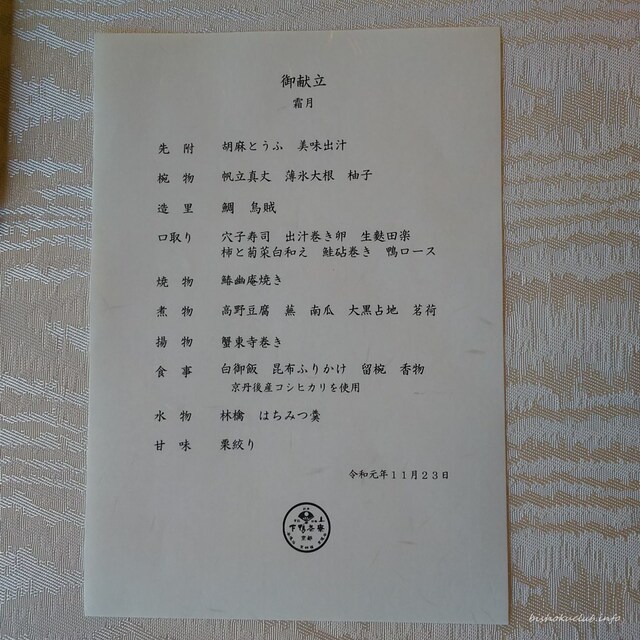 御献立
霜月
先附 胡麻とうふ 美味出汁
椀物 帆立真丈 薄氷大根 柚子
造里 鯛 烏賊
口取り 穴子寿司 出汁巻き卵 生麩田楽
柿と菊菜白和え 鮭砧巻き 鴨ロース
焼物 鰆幽庵焼き
煮物 高野豆腐 蕪 南瓜 大黒占地 茗荷
揚物 蟹東寺巻き
食事 白御飯 昆布ふりかけ 留椀 香物
京丹後産コシヒカリを使用
水物 林檎 はちみつ羹
甘味 栗絞り
令和元年11月23日
下鴨茶寮
京都
bishokuclub.info